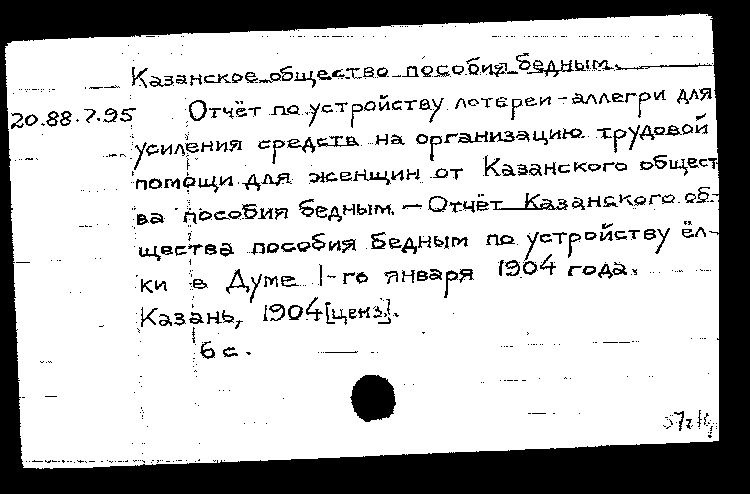 Казанское общество пособия бедным.
20.88.7.95 Отчёт по устройству лотереи-аллегри для
усиления средств на организацию трудовой
помощи для женщин от Казанского общест
ва пособия бедным. — Отчёт Казанского об-
щества пособия бедным по устройству ёл-
ки в Думе 1-го января 1904 года.
Казань, 1904 [ценз.].
6 с.